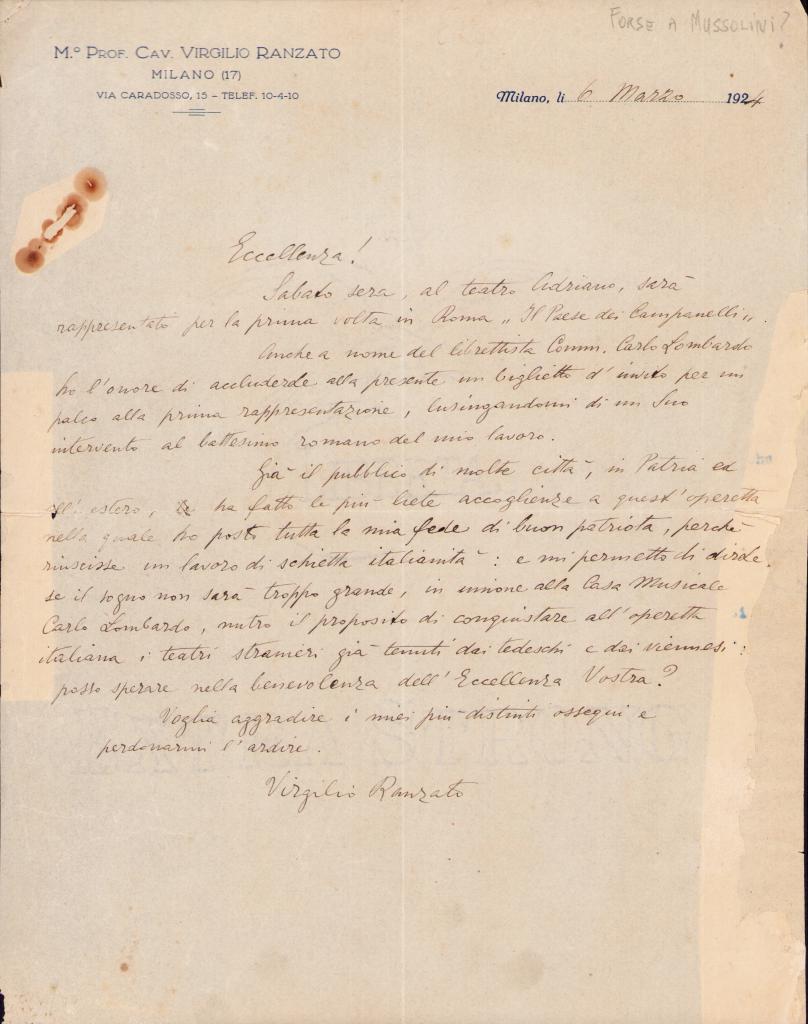 FORSE A MUSSOLINI?
M.º PROF. CAV. VIRGILIO RANZATO
MILANO (17)
VIA CARADOSSO, 15 – TELEF. 10-4-10
Milano, li 6 Marzo 1924
Eccellenza!
Sabato sera, al teatro Adriano, sarà
rappresentato per la prima volta in Roma „Il Paese dei Campanelli„.
Anche a nome del librettista Comm. Carlo Lombardo
ho l'onore di accluderle alla presente un biglietto d'invito per un
palco alla prima rappresentazione, lusingandomi di un Suo
intervento al battesimo romano del mio lavoro.
Già il pubblico di molte città, in Patria ed
all'estero, ha fatto le più liete accoglienze a quest'operetta
nella quale ho posto tutta la mia fede di buon patriota, perchè
riuscisse un lavoro di schietta italianità: e mi permetto di dirle,
se il sogno non sarà troppo grande, in unione alla Casa Musicale
Carlo Lombardo, nutro il proposito di conquistare all'operetta
italiana i teatri stranieri già tenuti dai tedeschi e dai viennesi:
posso sperare nella benevolenza dell'Eccellenza Vostra?
Voglia aggradire i miei più distinti ossequi e
perdonarmi l'ardire.
Virgilio Ranzato